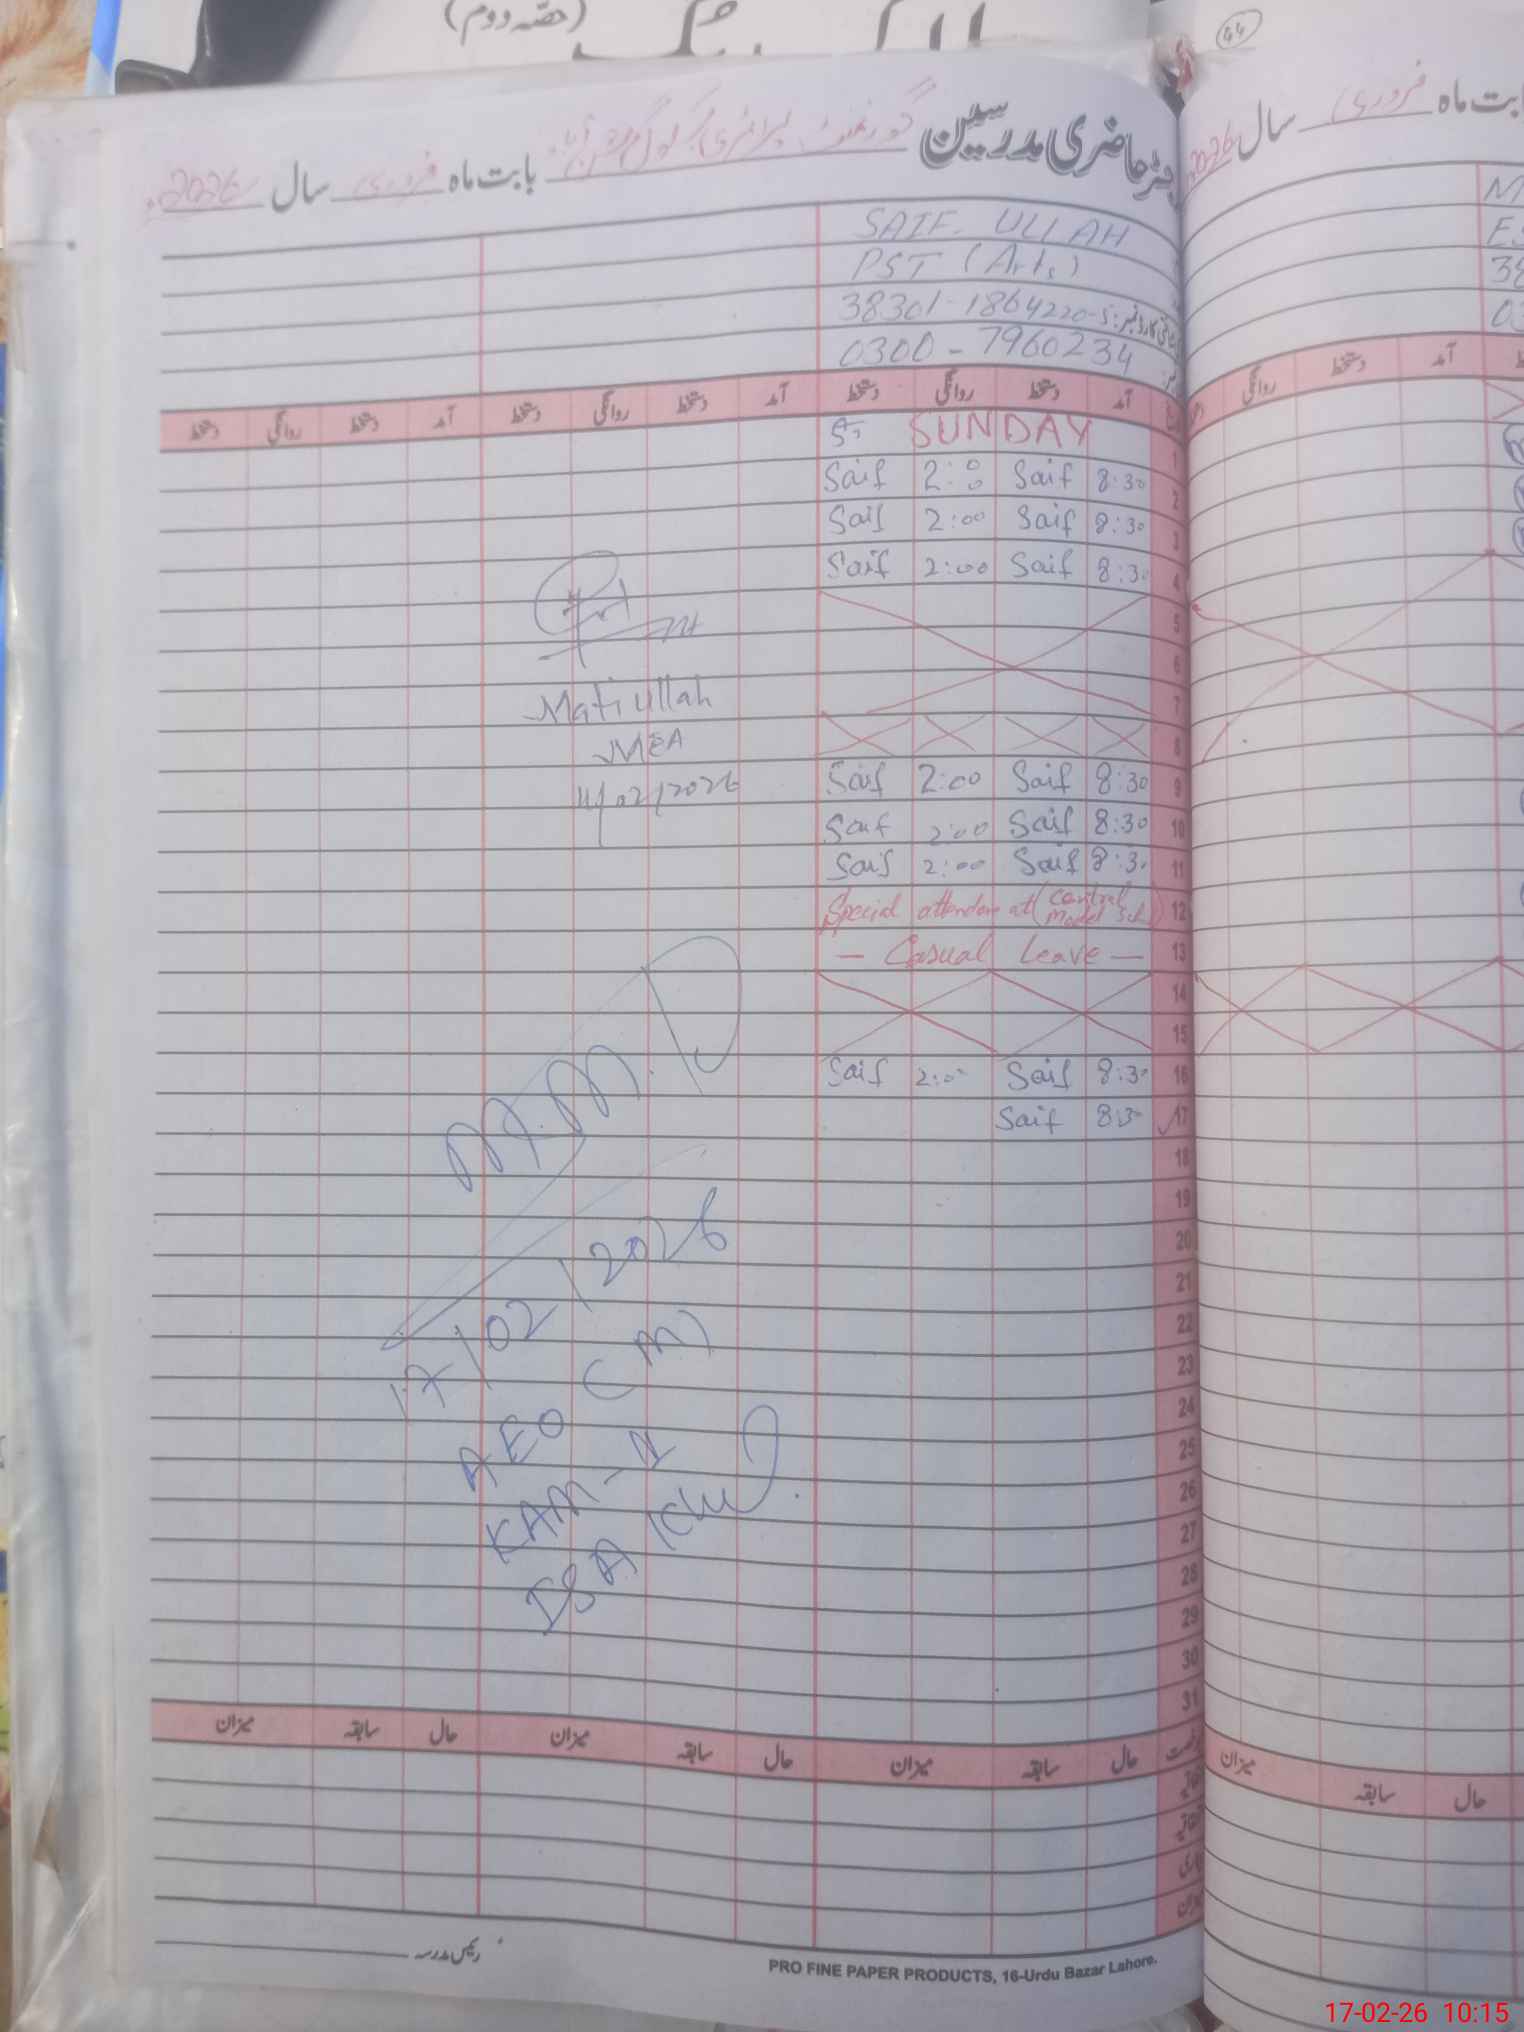 (حصّہ دوم)
44
رجسٹر حاضری مدرسین گورنمنٹ پرائمری بابت ماہ فروری سال 2026
بابت ماہ فروری سال 2026
SAIF ULLAH
PST (Arts)
38301-1864220-5
0300-7960234
آمد دستخط روانگی دستخط آمد دستخط روانگی دستخط آمد دستخط روانگی دستخط
آمد دستخط روانگی
1 SUNDAY
2 8:30 Saif 2:00 Saif
3 8:30 Saif 2:00 Saif
4 8:30 Saif 2:00 Saif
5
6
7
8
9 8:30 Saif 2:00 Saif
10 8:30 Saif 2:00 Saif
11 8:30 Saif 2:00 Saif
12 Special attendance at (Central Model Sch)
13 — Casual Leave —
14
15
16 8:30 Saif 2:00 Saif
17 8:30 Saif
18
19
20
21
22
23
24
25
26
27
28
29
30
31
Matiullah
MEA
11/02/2026
M.M.D
17/02/2026
AEO (M)
KAM-II
ISA Khel
حال سابقہ میزان حال سابقہ میزان حال سابقہ میزان
حال سابقہ میزان
رئیس مدرسہ
PRO FINE PAPER PRODUCTS, 16-Urdu Bazar Lahore.
17-02-26 10:15